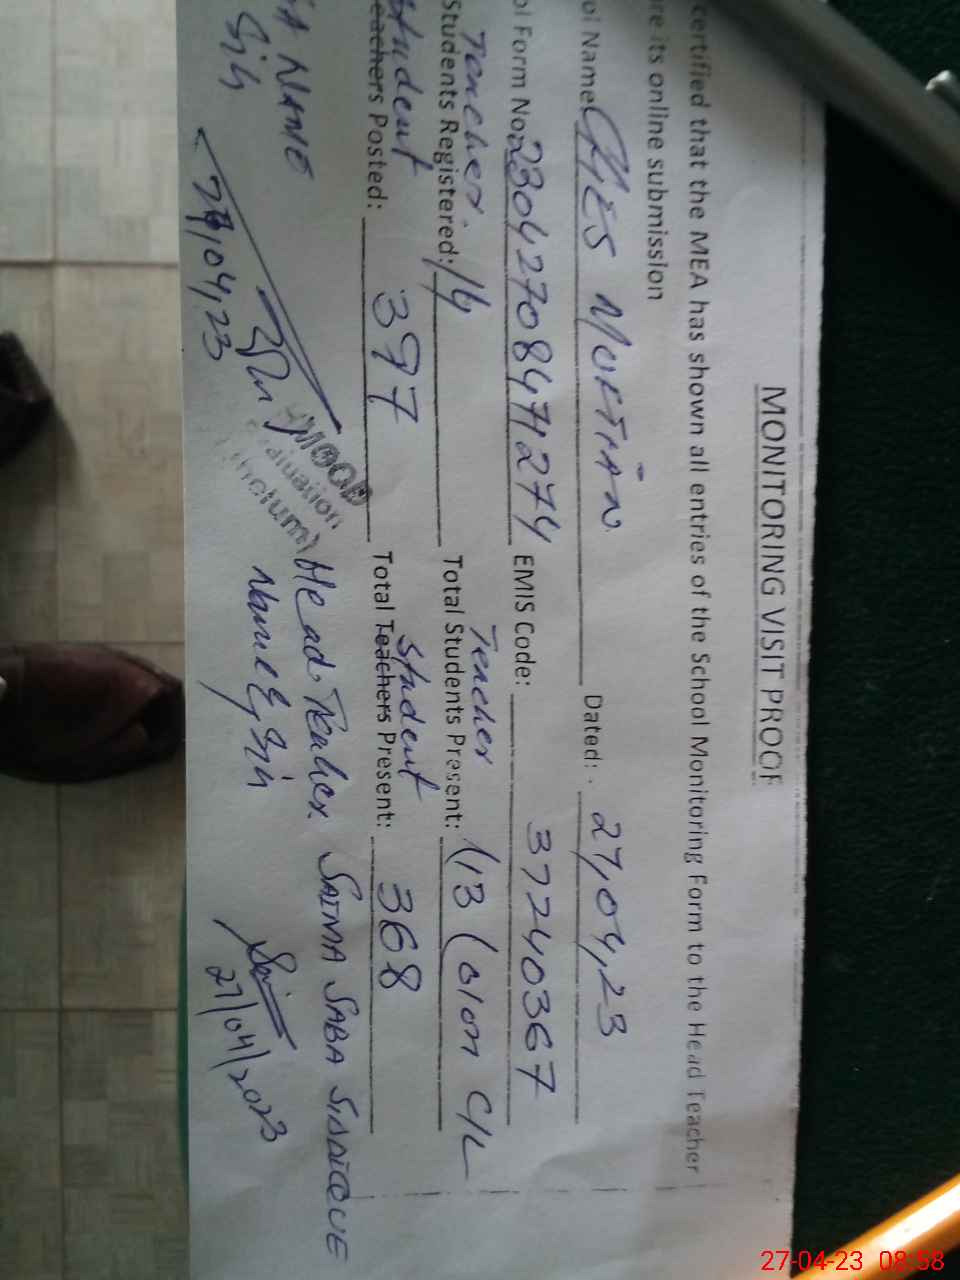 MONITORING VISIT PROOF
certified that the MEA has shown all entries of the School Monitoring Form to the Head Teacher
re its online submission
ol Name: GGES MURTIAN Dated: 27,04,23
ol Form No: 23042708471274 EMIS Code: 37240367
Teacher. Teacher
Students Registered: 14 Total Students Present: 13 (01 on C/L
Student Student
eachers Posted: 397 Total Teachers Present: 368
A NAME Head Teacher. SAIMA SABA SIDDIQUE
Sih Name & Sih
MOOD
aluation
27/04/2023
27-04-23 08:58